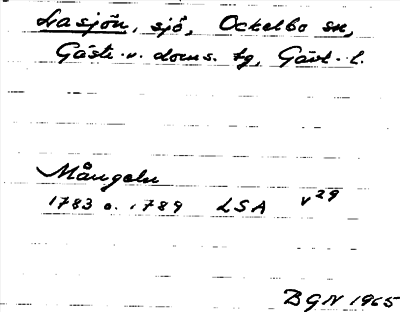 Lasjön, sjö, Ockelbo sn,
Gästr. v. doms. tg, Gävl. l.
Mångeln
1783 o. 1789 LSA v29
BGN 1965